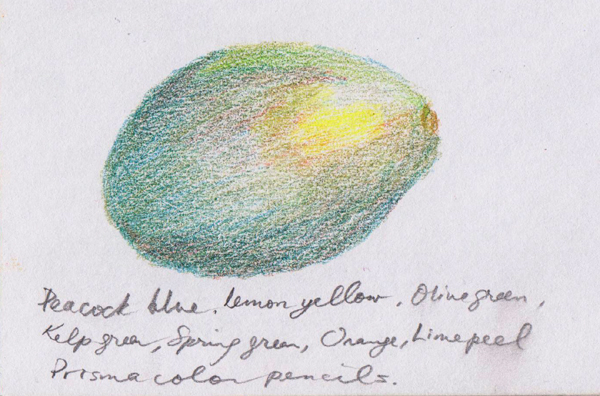 Peacock blue. Lemon yellow, Olive green,
Kelp green, Spring green, Orange, Lime peel
Prismacolor pencils.